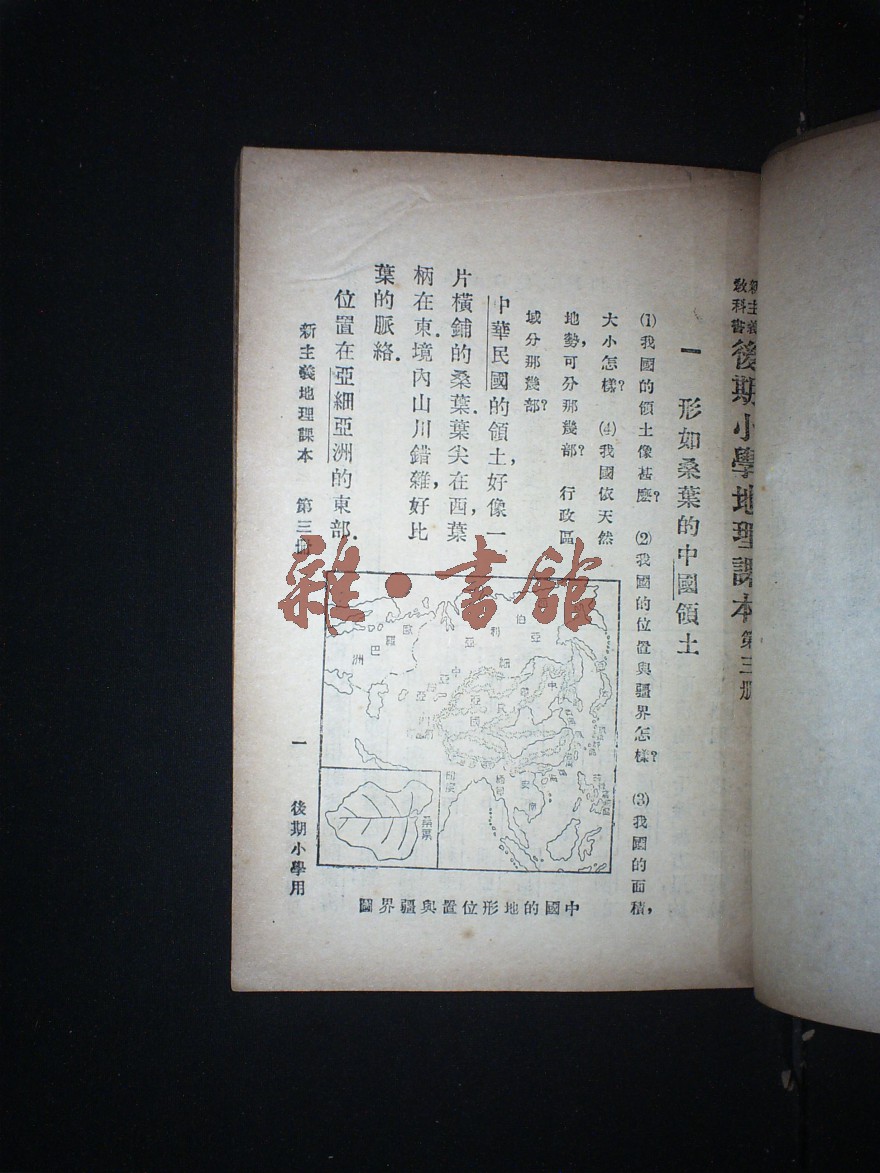 新主義
教科書
後期小學地理課本第三册
一 形如桑葉的中國領土
⑴我國的領土像甚麽？ ⑵我國的位置與疆界怎樣？ ⑶我國的面積，
大小怎樣？ ⑷我國依天然
地勢，可分那幾部？ 行政區
域分那幾部？
中華民國的領土，好像一
片橫鋪的桑葉．葉尖在西，葉
柄在東．境內山川錯雜，好比
葉的脈絡．
位置在亞細亞洲的東部．
新主義地理課本 第三册
一 後期小學用
歐
羅
巴
洲
西
伯
利
亞
中
華
民
國
桑葉
中國的地形位置與疆界圖
雜·書館